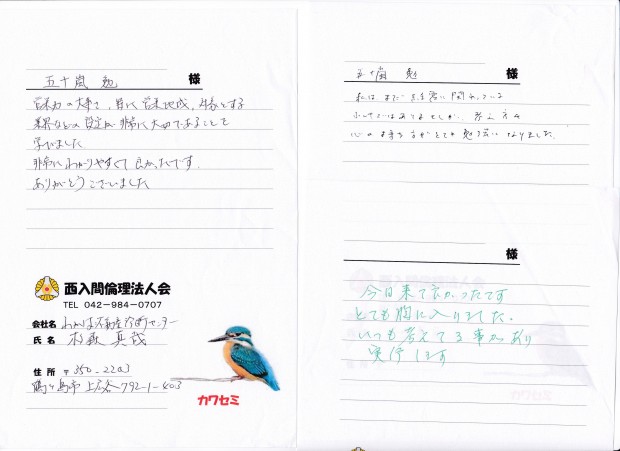 五十嵐 勉 様
営業力の大事さ、単に営業地域、得意とする
業界などの設定が非常に大切であることを
学びました
非常にわかりやすくて良かったです.
ありがとうございました
西入間倫理法人会
TEL 042-984-0707
会社名
氏名 真茂
住所 〒350-2203
鶴ヶ島市上広谷792-1-403
カワセミ
五十嵐 勉 様
私はまだ 営業に関わっている
わけではありませんが、考え方や
心の持ち方がとても勉強になりました.
様
今日来て良かったです
とても胸に入りました.
いつも考えてる事があり
実行します